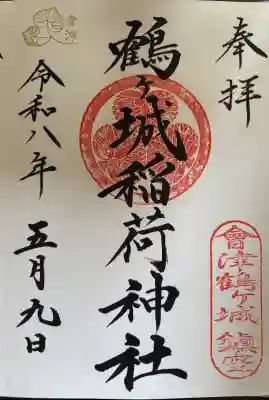 奉拝
鶴ヶ城稲荷神社
令和八年
五月九日
會津鶴ヶ城鎮守
會津